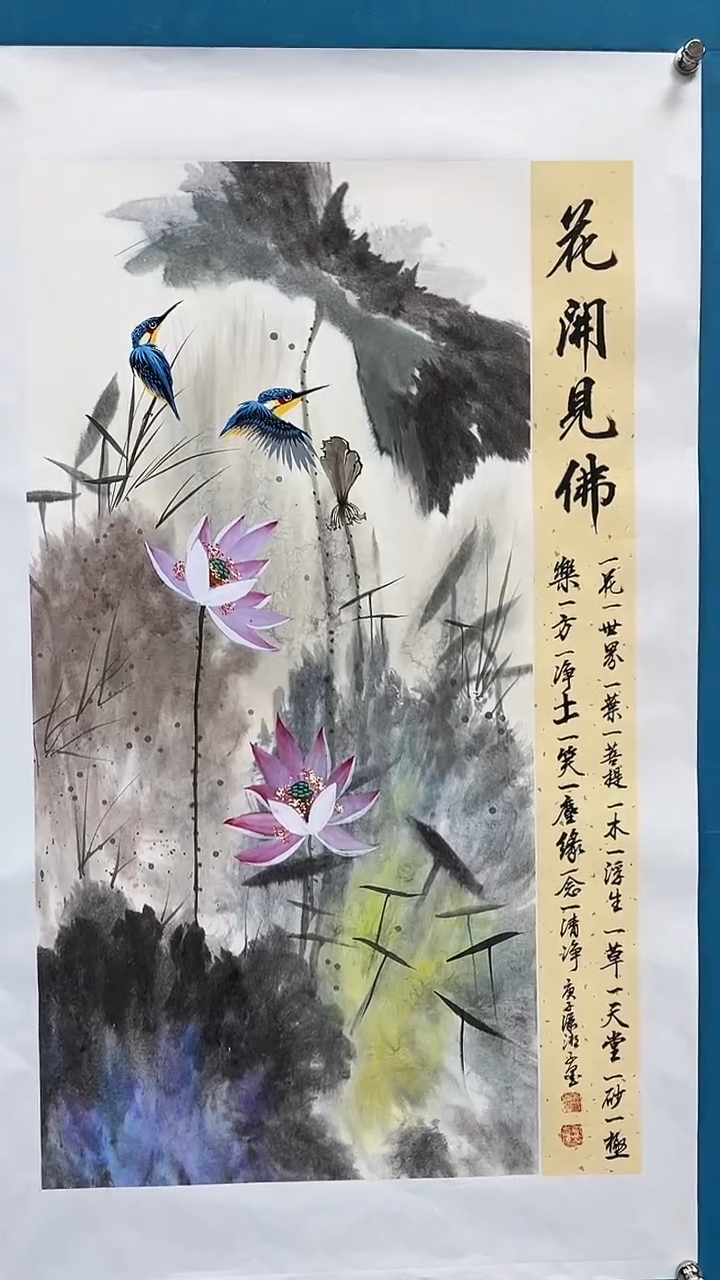 花開見佛
一花一世界一葉一菩提一木一浮生一草一天堂一砂一極
樂一方一净土一笑一塵缘一念一清净
庚子瀟湘